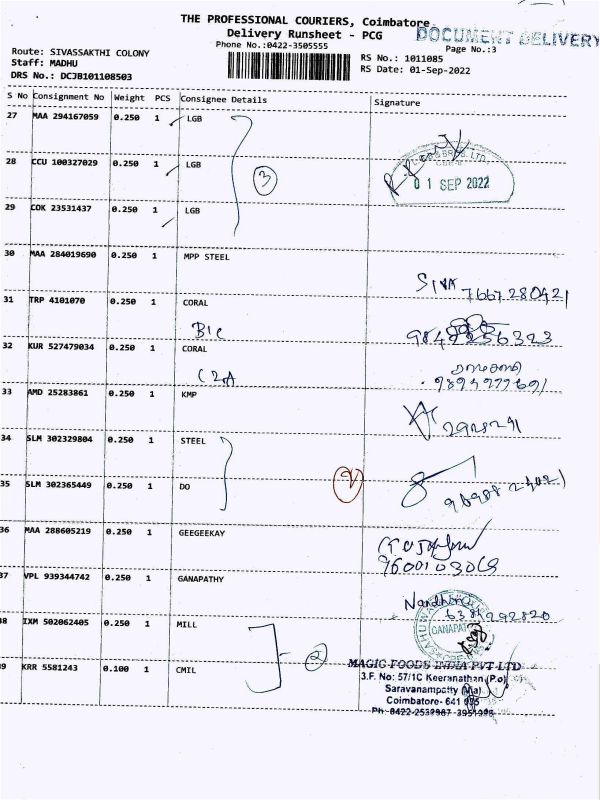 THE PROFESSIONAL COURIERS, Coimbatore
Delivery Runsheet - PCG
DOCUMENT DELIVERY
Phone No.:0422-3505555
Page No.:3
Route: SIVASAKTHI COLONY
Staff: MADHU
DRS No.: DCJB101108503
RS No.: 1011085
RS Date: 01-Sep-2022
S No Consignment No Weight PCS Consignee Details Signature
27 MAA 294167059 0.250 1 LGB
28 CCU 100327029 0.250 1 LGB
3
01 SEP 2022
29 COK 23531437 0.250 1 LGB
30 MAA 284019690 0.250 1 MPP STEEL
SIVA 7667280421
31 TRP 4101070 0.250 1 CORAL
B1c
9842256323
32 KUR 527479034 0.250 1 CORAL
33 AMD 25283861 0.250 1 KMP
34 SLM 302329804 0.250 1 STEEL
35 SLM 302365449 0.250 1 DO
36 MAA 288605219 0.250 1 GEEGEEKAY
37 VPL 939344742 0.250 1 GANAPATHY
Nandhini
GANAPAT
38 IXM 502062405 0.250 1 MILL
2
39 KRR 5581243 0.100 1 CMIL
MAGIC FOODS INDIA PVT LTD
3.F. No: 57/1C Keeranathan (P.o)
Saravanampatty (Via)
Coimbatore- 641 035